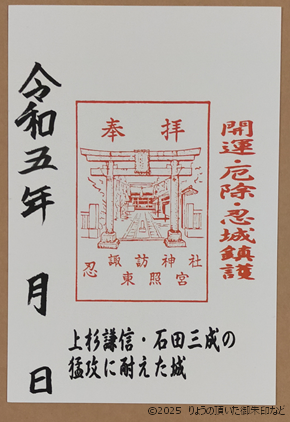 開運・厄除・忍城鎮護
奉拝
忍 諏訪神社
東照宮
上杉謙信・石田三成の
猛攻に耐えた城
令和五年 月 日
©2025 りょうの頂いた御朱印など